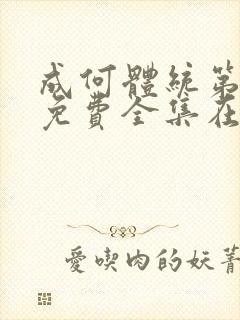 成何體統第
免費全集在
愛喫肉的妖菁